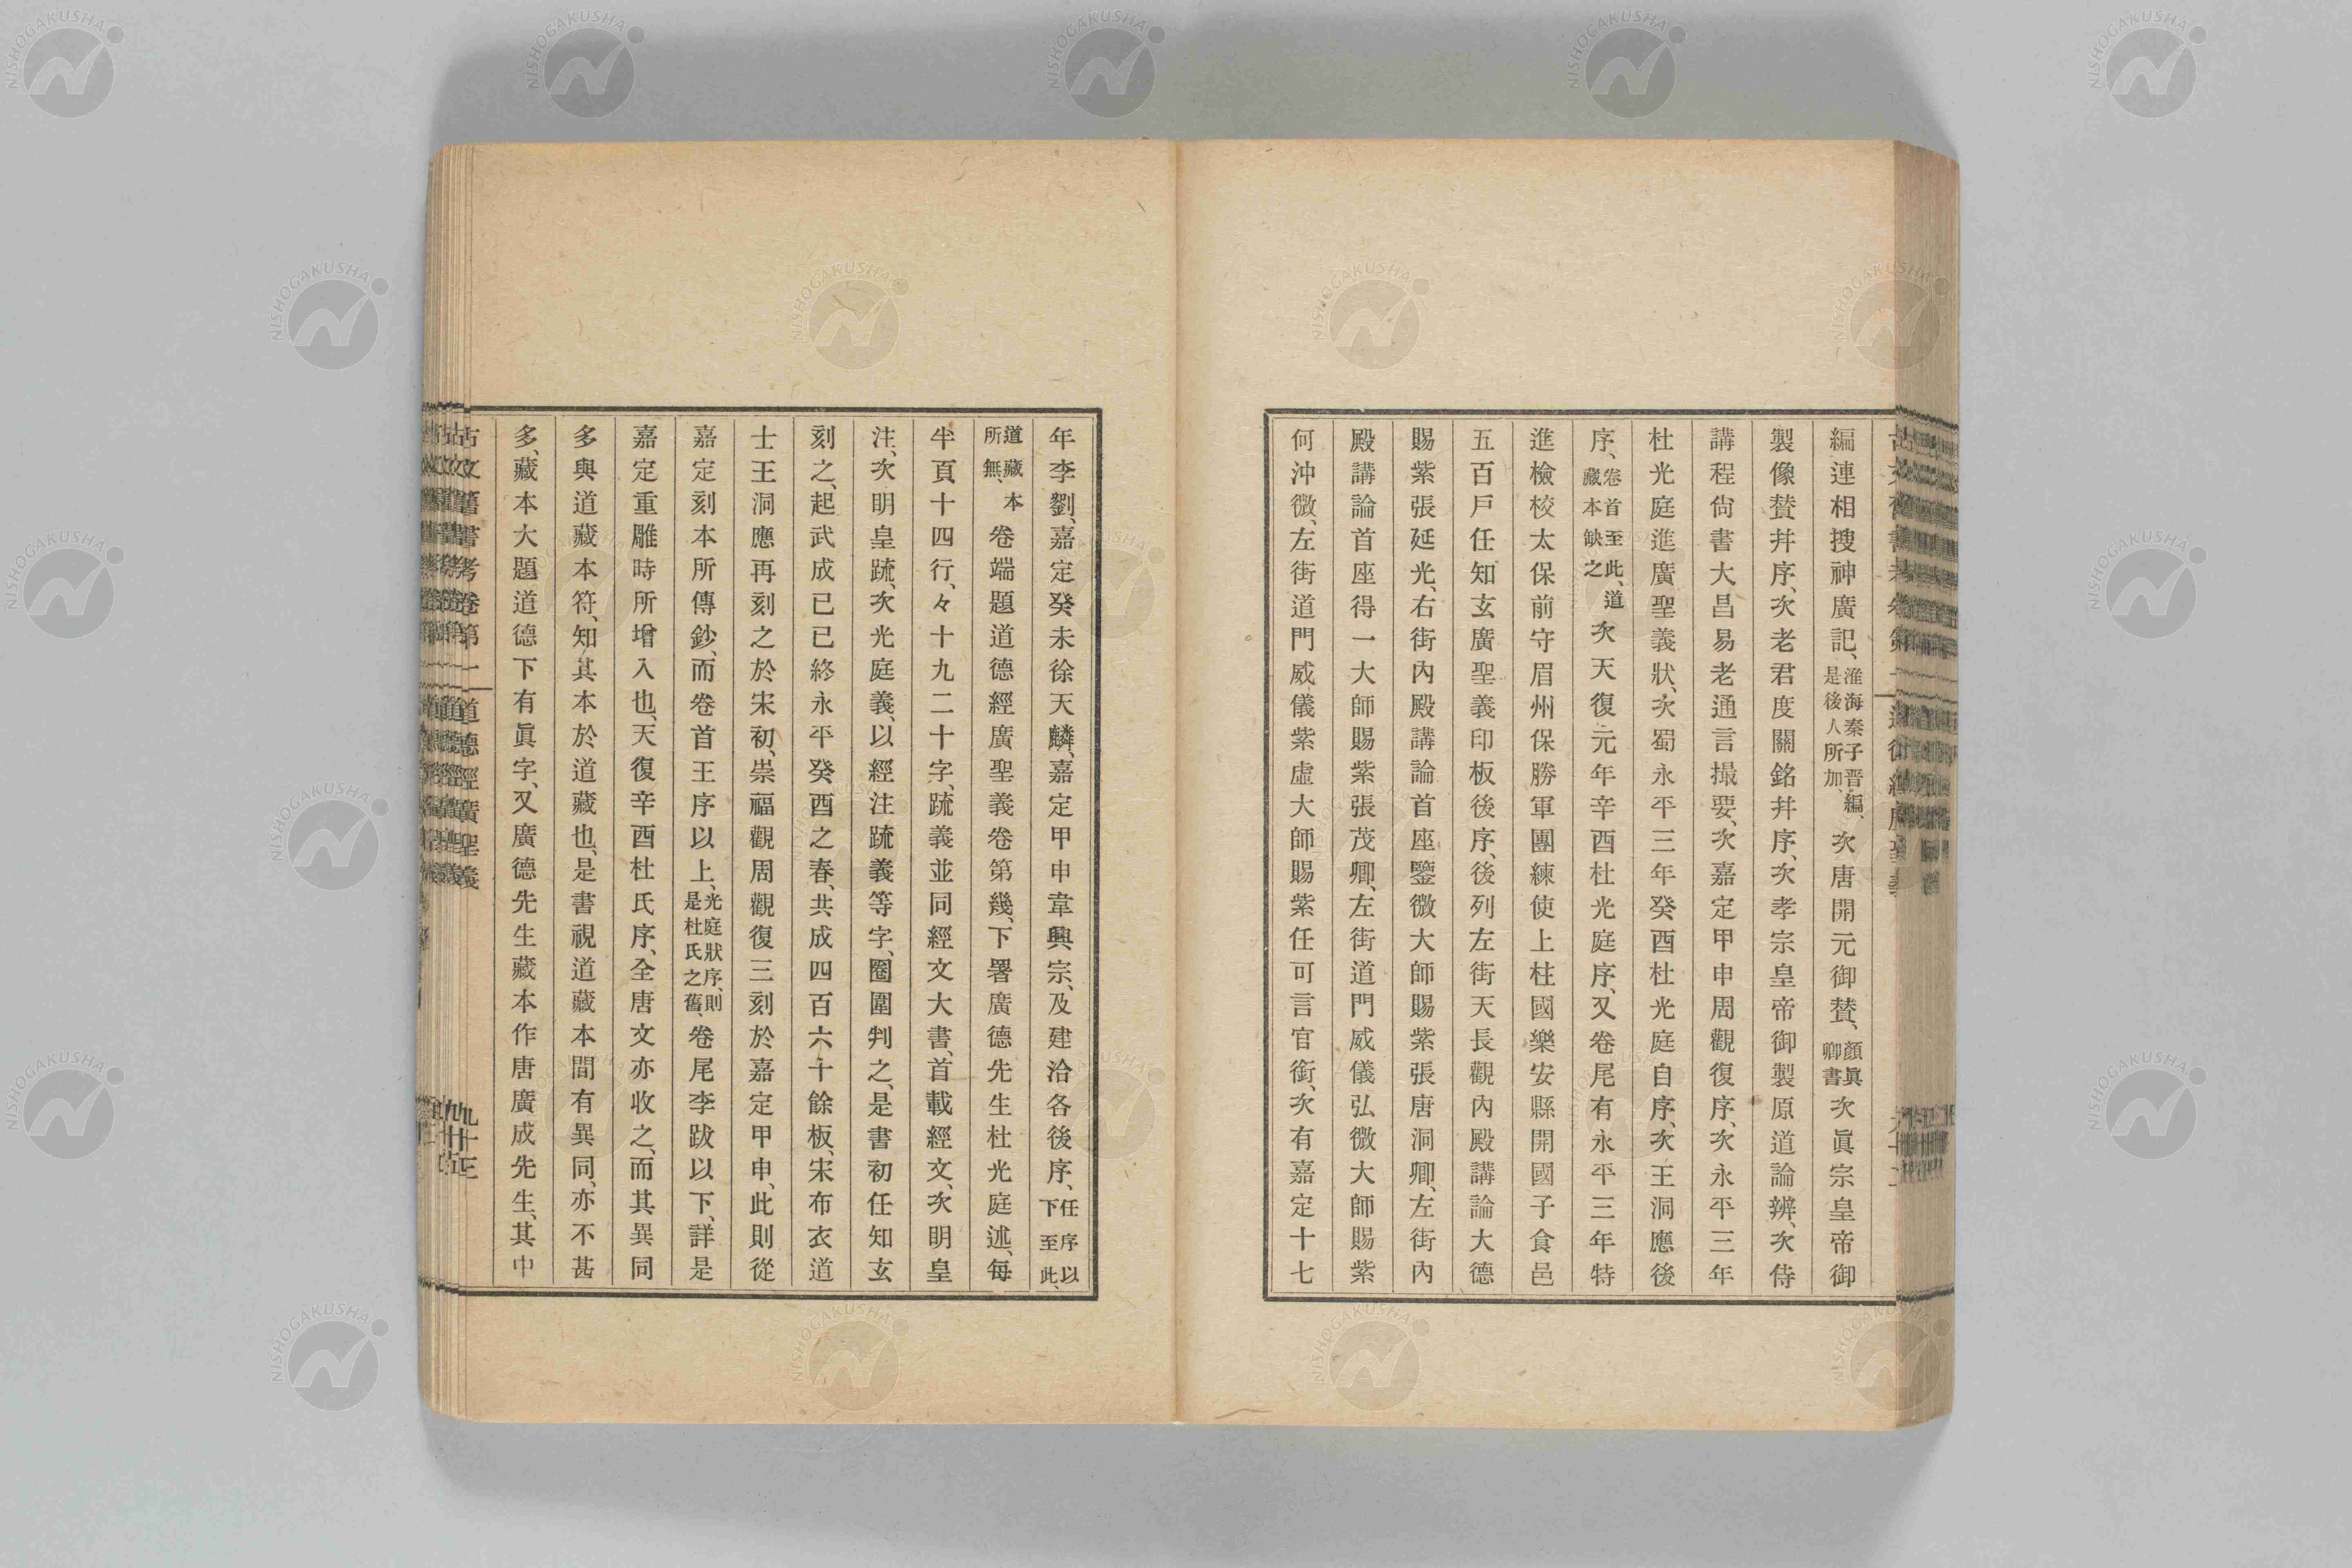 編連相搜神廣記、淮海秦子晋編、是後人所加、次唐開元御賛、顏眞卿書次眞宗皇帝御
製像賛并序、次老君度關銘并序、次孝宗皇帝御製原道論辨、次侍
講程尙書大昌易老通言撮要、次嘉定甲申周觀復序、次永平三年
杜光庭進廣聖義狀、次蜀永平三年癸酉杜光庭自序、次王洞應後
序、卷首至此、道藏本缺之次天復元年辛酉杜光庭序、又卷尾有永平三年特
進檢校太保前守眉州保勝軍團練使上柱國樂安縣開國子食邑
五百戶任知玄廣聖義印板後序、後列左街天長觀內殿講論大德
賜紫張延光、右街內殿講論首座鑒微大師賜紫張唐洞卿、左街內
殿講論首座得一大師賜紫張茂卿、左街道門威儀弘微大師賜紫
何沖微、左街道門威儀紫虛大師賜紫任可言官銜、次有嘉定十七
年李劉、嘉定癸未徐天麟、嘉定甲申韋興宗、及建洽各後序、任序以下至此、
道藏本所無、卷端題道德經廣聖義卷第幾、下署廣德先生杜光庭述、每
半頁十四行、々十九二十字、䟽義並同經文大書、首載經文、次明皇
注、次明皇䟽、次光庭義、以經注䟽義等字、圈圍判之、是書初任知玄
刻之、起武成已已終永平癸酉之春、共成四百六十餘板、宋布衣道
士王洞應再刻之於宋初、崇福觀周觀復三刻於嘉定甲申、此則從
嘉定刻本所傳鈔、而卷首王序以上、光庭狀序、則是杜氏之舊、卷尾李跋以下、詳是
嘉定重雕時所增入也、天復辛酉杜氏序、全唐文亦收之、而其異同
多與道藏本符、知其本於道藏也、是書視道藏本間有異同、亦不甚
多、藏本大題道德下有眞字、又廣德先生藏本作唐廣成先生、其中
古文舊書考卷第一 道德經廣聖義
NISHOGAKUSHA